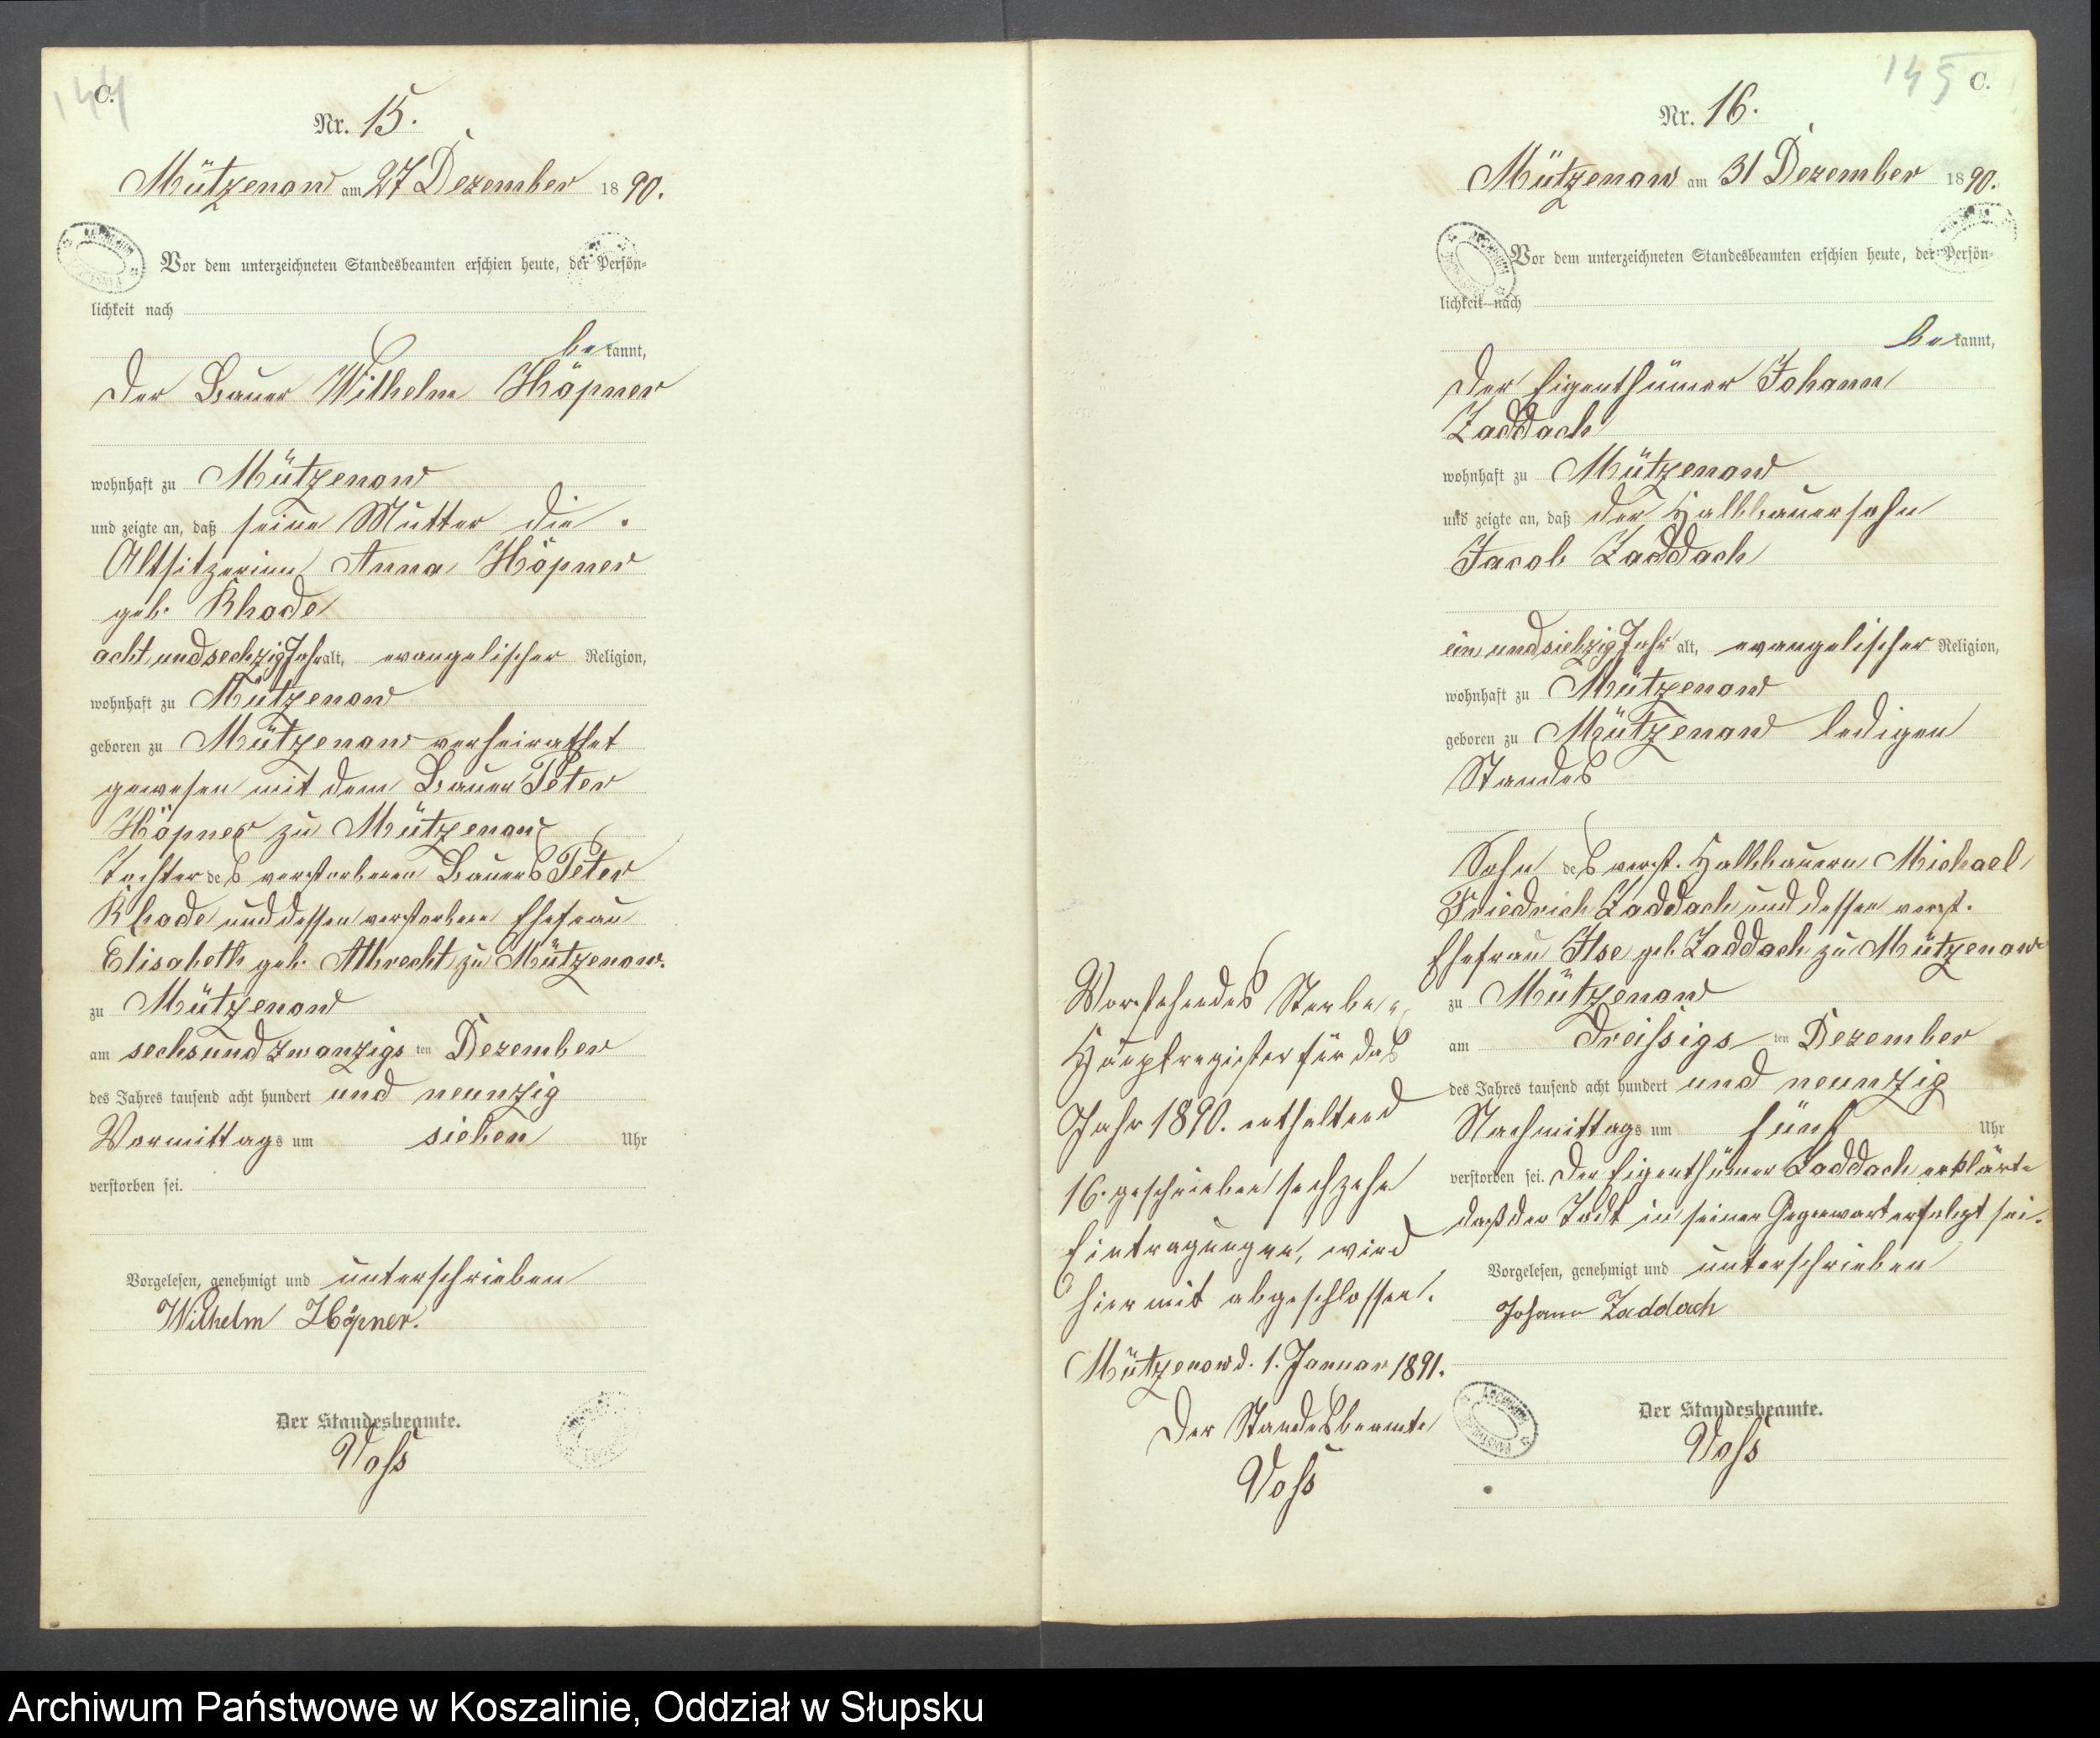 144
C.
Nr. 15.
Mützenow am 27 Dezember 1890.
Vor dem unterzeichneten Standesbeamten erschien heute, der Persön-
lichkeit nach
bekannt,
der Bauer Wilhelm Höpner
wohnhaft zu Mützenow
und zeigte an, daß seine Mutter die
Altsitzerinn Anna Höpner
geb. Rhode
acht und sechzig Jahr alt, evangelischer Religion,
wohnhaft zu Mützenow
geboren zu Mützenow verheirathet
gewesen mit dem Bauer Peter
Höpner zu Mützenow
Tochter des verstorbenen Bauers Peter
Rhode und dessen verstorbene Ehefrau
Elisabeth geb. Albrecht zu Mützenow.
zu Mützenow
am sechsund zwanzigsten Dezember
des Jahres tausend acht hundert und neunzig
Vormittags um sieben Uhr
verstorben sei.
Vorgelesen, genehmigt und unterschrieben
Wilhelm Höpner.
Der Standesbeamte.
Voss
145
C.
Nr. 16.
Mützenow am 31 Dezember 1890.
Vor dem unterzeichneten Standesbeamten erschien heute, der Persön-
lichkeit nach
bekannt,
der Eigenthümer Johann
Zaddach
wohnhaft zu Mützenow
und zeigte an, daß der Halbbauersohn
Jacob Zaddach
ein und siebzig Jahr alt, evangelischer Religion,
wohnhaft zu Mützenow
geboren zu Mützenow ledigen
Standes
Sohn des verst. Halbbauern Michael
Friedrich Zaddach und dessen verst.
Ehefrau Ilse geb. Zaddach zu Mützenow
zu Mützenow
am dreissigsten Dezember
des Jahres tausend acht hundert und neunzig
Nachmittags um fünf Uhr
verstorben sei. Der Eigenthümer Zaddach erklärte
daß der Todt in seiner Gegenwart erfolgt sei.
Vorgelesen, genehmigt und unterschrieben
Johann Zaddach
Der Standesbeamte.
Voss
Vorstehendes Sterbe-
Hauptregister für das
Jahr 1890. enthaltend
16. geschrieben sechzehn
Eintragungen, wird
hiermit abgeschlossen.
Mützenow d. 1. Januar 1891.
Der Standesbeamte
Voss
Archiwum Państwowe w Koszalinie, Oddział w Słupsku